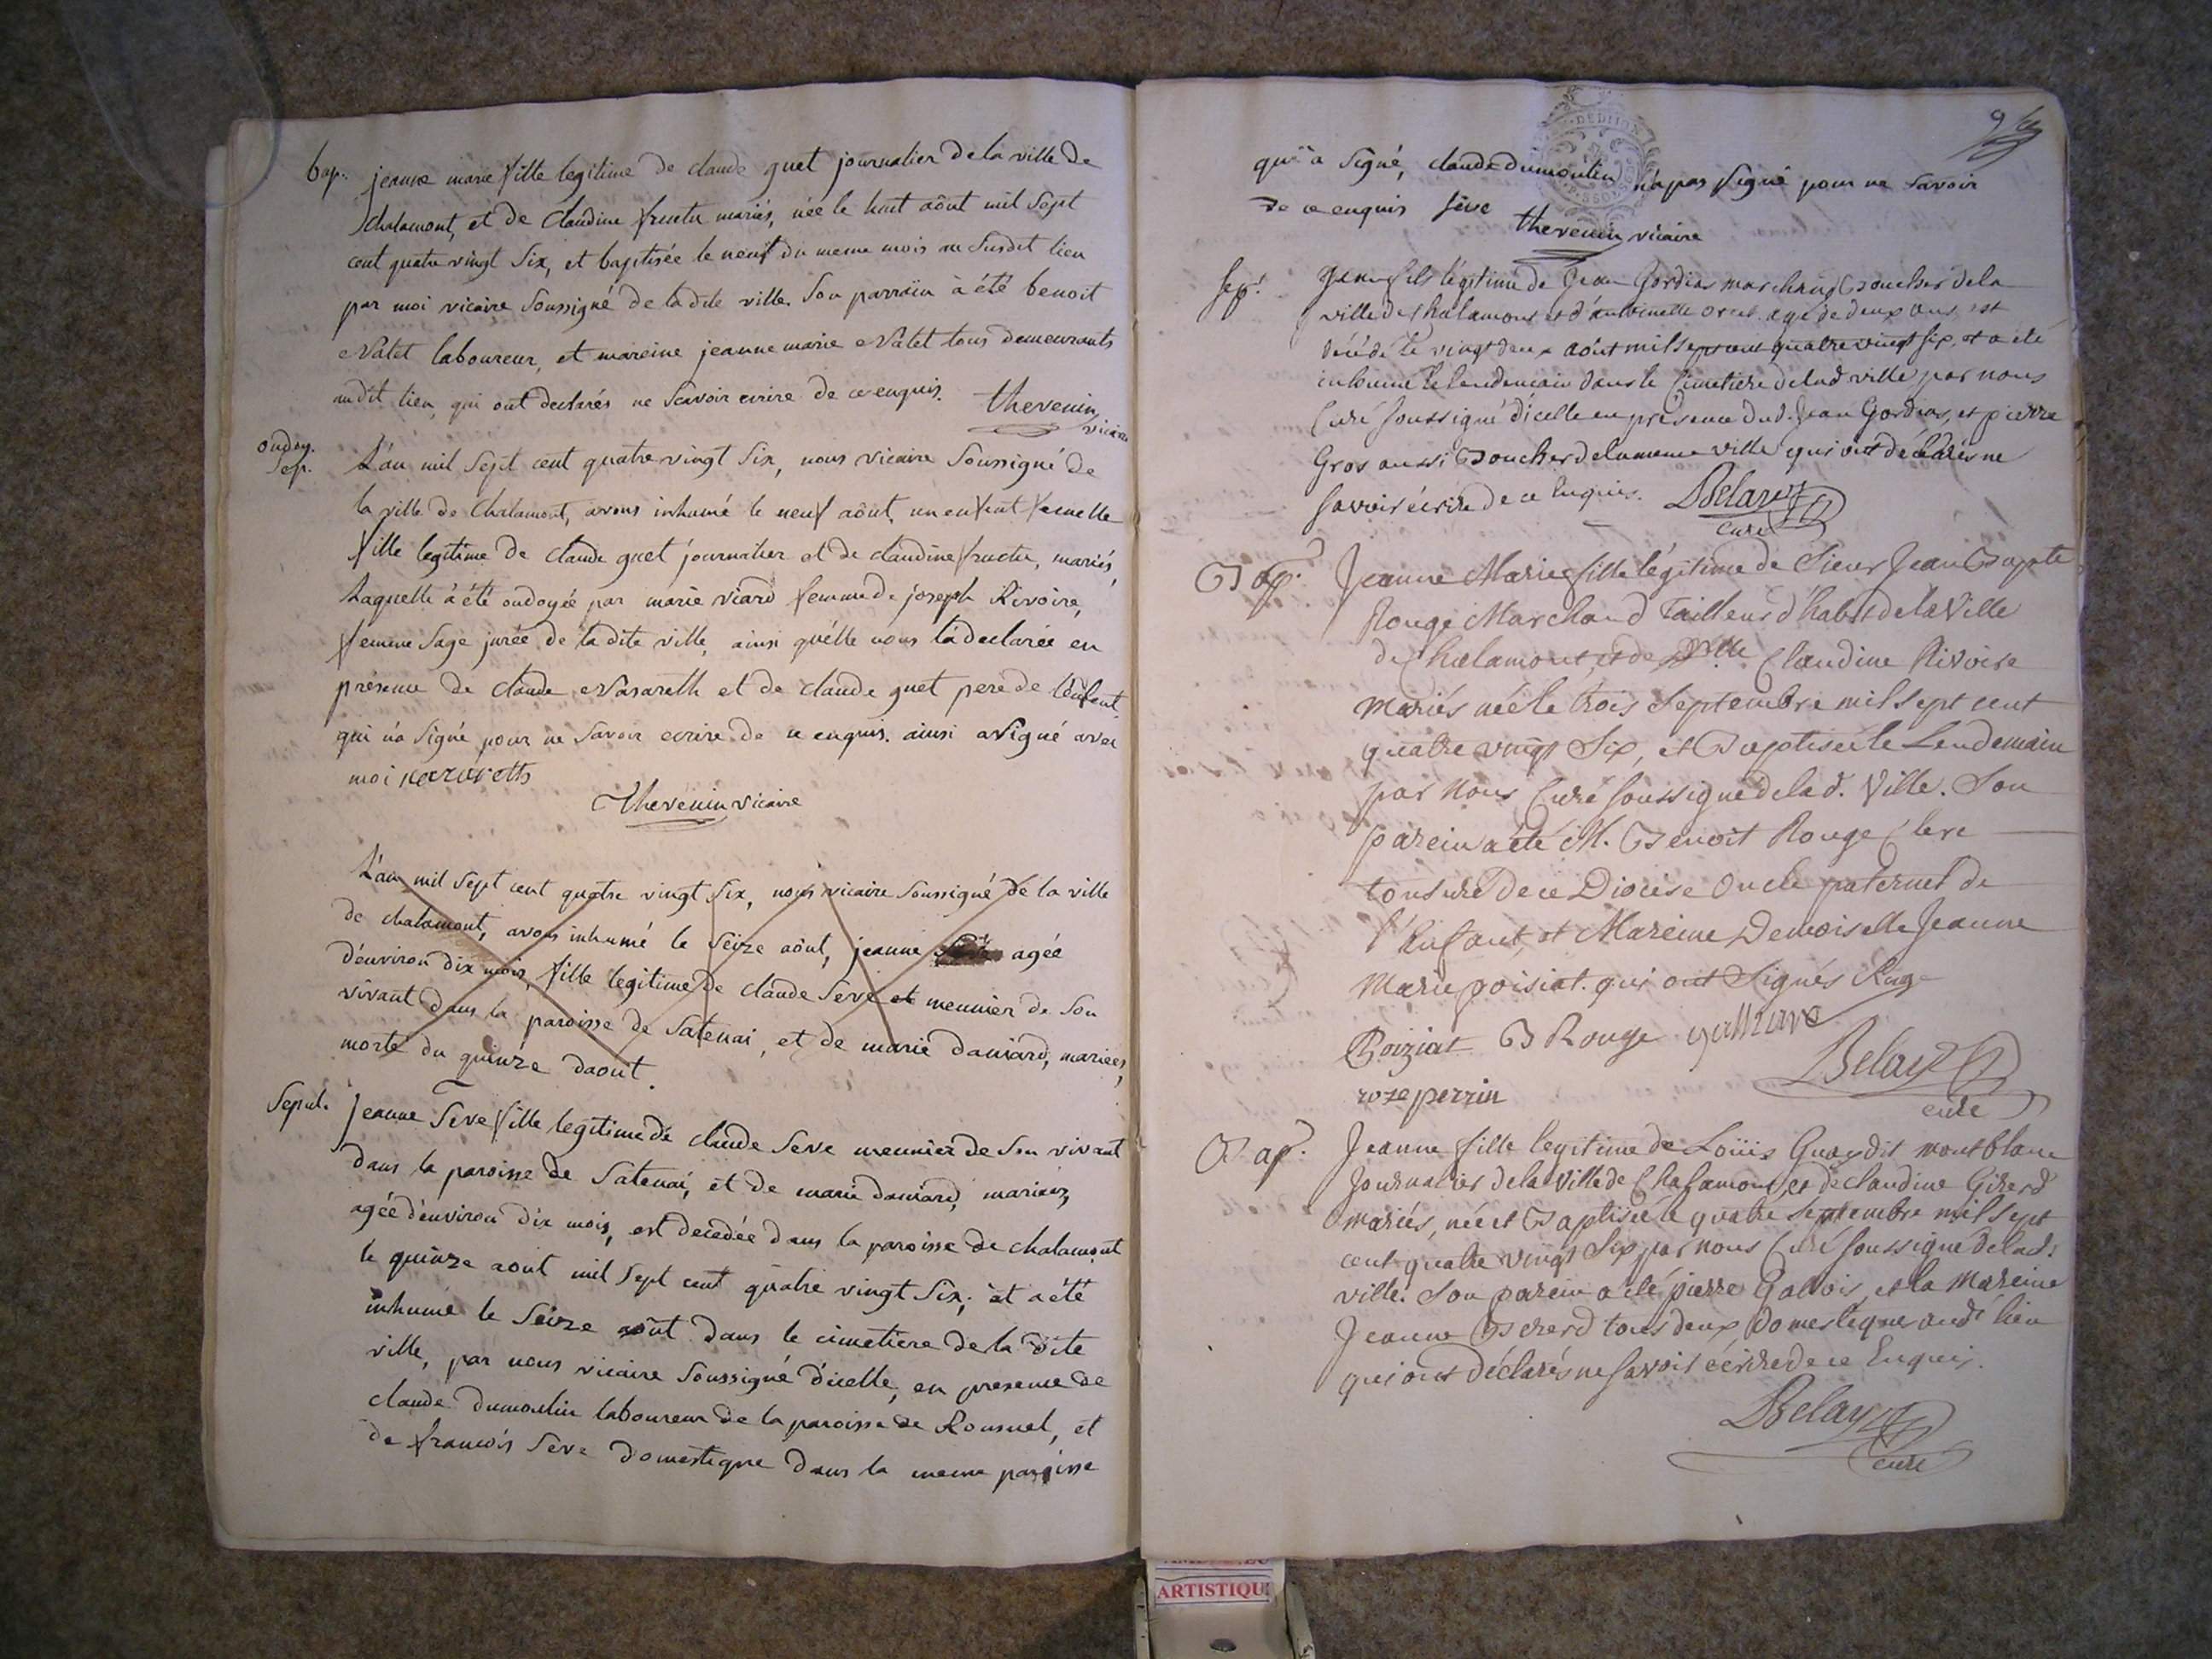 bap. jeanne marie fille legitime de claude guet journalier de la ville de
chalamont, et de claudine fructu mariés, née le huit aôut mil sept
cent quatre vingt six, et baptisée le neuf du meme mois au susdit lieu
par moi vicaire soussigné de la dite ville. son parrain à été benoit
Valet laboureur, et mareine jeanne marie Valet tous demeurants
audit lieu, qui ont declarés ne scavoir ecrire de ce enquis. thevenin
vicaire
ondoy.
sep. L'an mil sept cent quatre vingt six, nous vicaire soussigné de
la ville de chalamont, avons inhumé le neuf aôut, un enfant femelle
fille legitime de claude guet journalier et de claudine fructu, mariés,
Laquelle à été ondoyée par marie viard femme de joseph Rivoire,
femme sage jurée de la dite ville, ainsi qu'elle nous l'a declarée en
presence de claude Nasareth et de claude guet pere de l'enfant,
qui n'a signé pour ne savoir ecrire de ce enquis. ainsi a signé avec
moi nazareth
Thevenin vicaire
L'an mil sept cent quatre vingt six, nous vicaire soussigné de la ville
de chalamont, avons inhumé le seize aôut, jeanne agée
d'environ dix mois, fille legitime de claude seve et meunier de son
vivant dans la paroisse de Satenai, et de marie daniard, mariées,
morte du quinze daout.
Sepul. jeanne Seve fille legitime de claude Seve meunier de son vivant
dans la paroisse de Satenai, et de marie daniard, mariés,
agée d'environ dix mois, est decedée dans la paroisse de chalamont
le quinze aout mil sept cent quatre vingt six; et a été
inhumé le seize aôut dans le cimetiere de la dite
ville, par nous vicaire soussigné d'icelle, en presence de
claude dumoulin laboureur de la paroisse de Ronsuel, et
de francois seve domestique dans la meme paroisse
qui a signé, claude dumoulin n'a pas signé pour ne savoir
de ce enquis sève
thevenin vicaire
Sep. Jean fils légitime de Jean Gordias marchand Boucher de la
ville de Chalamont et d'antoinette agé de deux ans, est
décédé le vingt deux aôut mil sept cent quatre vingt six, et a été
inhumé le lendemain dans le Cimetiere de lad ville par nous
Curé soussigné d'icelle en présence dud. Jean Gordias, et pierre
Gros aussi Boucher de la meme ville qui ont déclarés ne
savoir écrire de ce Enquis. Belay
curé
Bap. Jeanne Marie fille légitime de Sieur Jean Bapte
Rouge Marchand Tailleur d'habit de la Ville
de Chalamont, et de Dlle Claudine Rivoire
mariés née le trois Septembre mil sept cent
quatre vingt Six, et Baptisée le Lendemain
par Nous Curé soussigné de lad. Ville. Son
parein a été M. Benoit Rouge Clerc
tonsuré de ce Diocèse Oncle paternel de
l'Enfant, et Mareine Demoiselle Jeanne
Marie poisiat. qui ont Signés Rouge
Poiziat B Rouge
Belay
roze perrin
curé
Bap. Jeanne fille legitime de Loüis Guay dit montblanc
Journalier de la Ville de Chalamont, et de claudine Girerd
mariés, née et Baptisée le quatre Septembre mil sept
cent quatre vingt Six par nous Curé soussigné de lad.
ville. Son parein a été pierre Galvois, et la Mareine
Jeanne tous deux domestiques audt lieu
qui ont déclarés ne savoir écrire de ce Enquis.
Belay
curé
ARTISTIQU